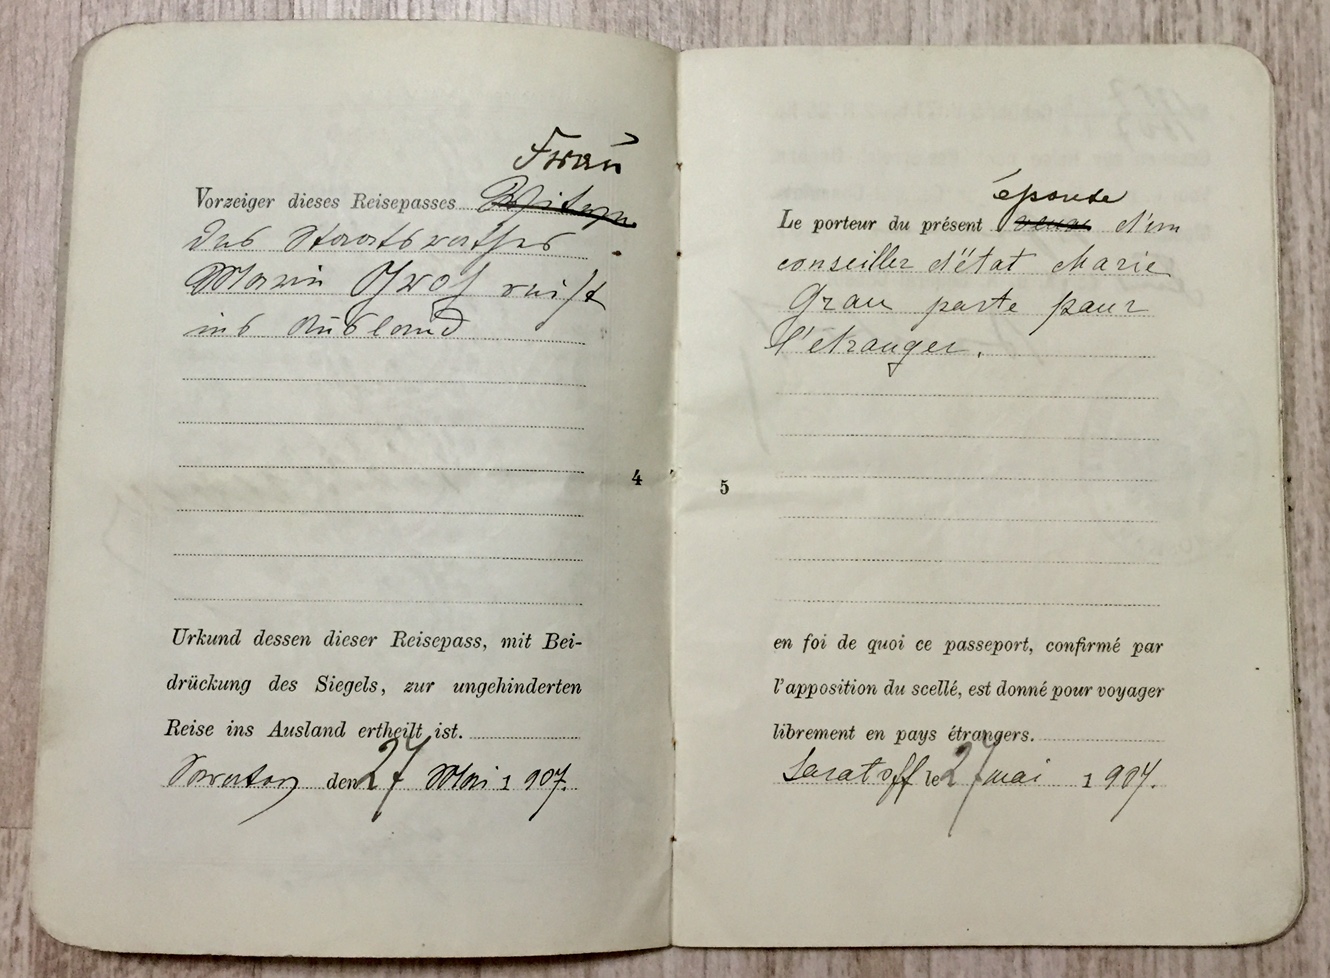 Frau
Vorzeiger dieses Reisepasses
des Staatsrathes
Marie reist
ins Ausland
4
Urkund dessen dieser Reisepass, mit Bei-
drückung des Siegels, zur ungehinderten
Reise ins Ausland ertheilt ist.
Saratow den 27 Mai 1907.
épouse
Le porteur du présent veuve d'un
conseiller d'état Marie
Grau parte pour
l'étranger.
5
en foi de quoi ce passeport, confirmé par
l'apposition du scellé, est donné pour voyager
librement en pays étrangers.
Saratoff le 27 mai 1907.